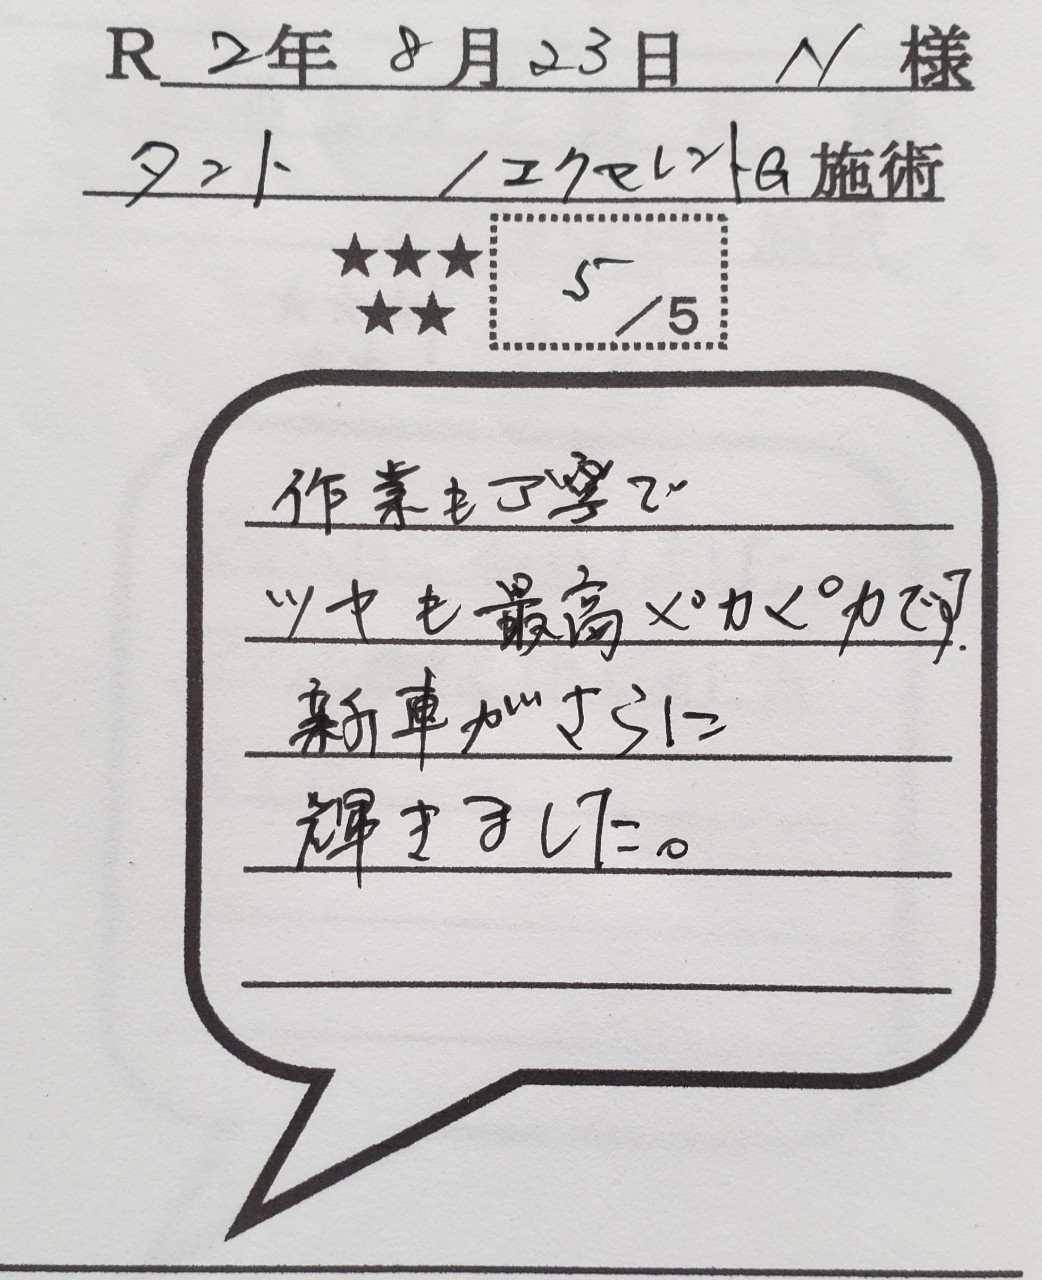 R 2年 8月23日 N 様
タント /エクセレントG 施術
★★★
★★
5/5
作業も丁寧で
ツヤも最高ペカペカです!
新車がさらに
輝きました。